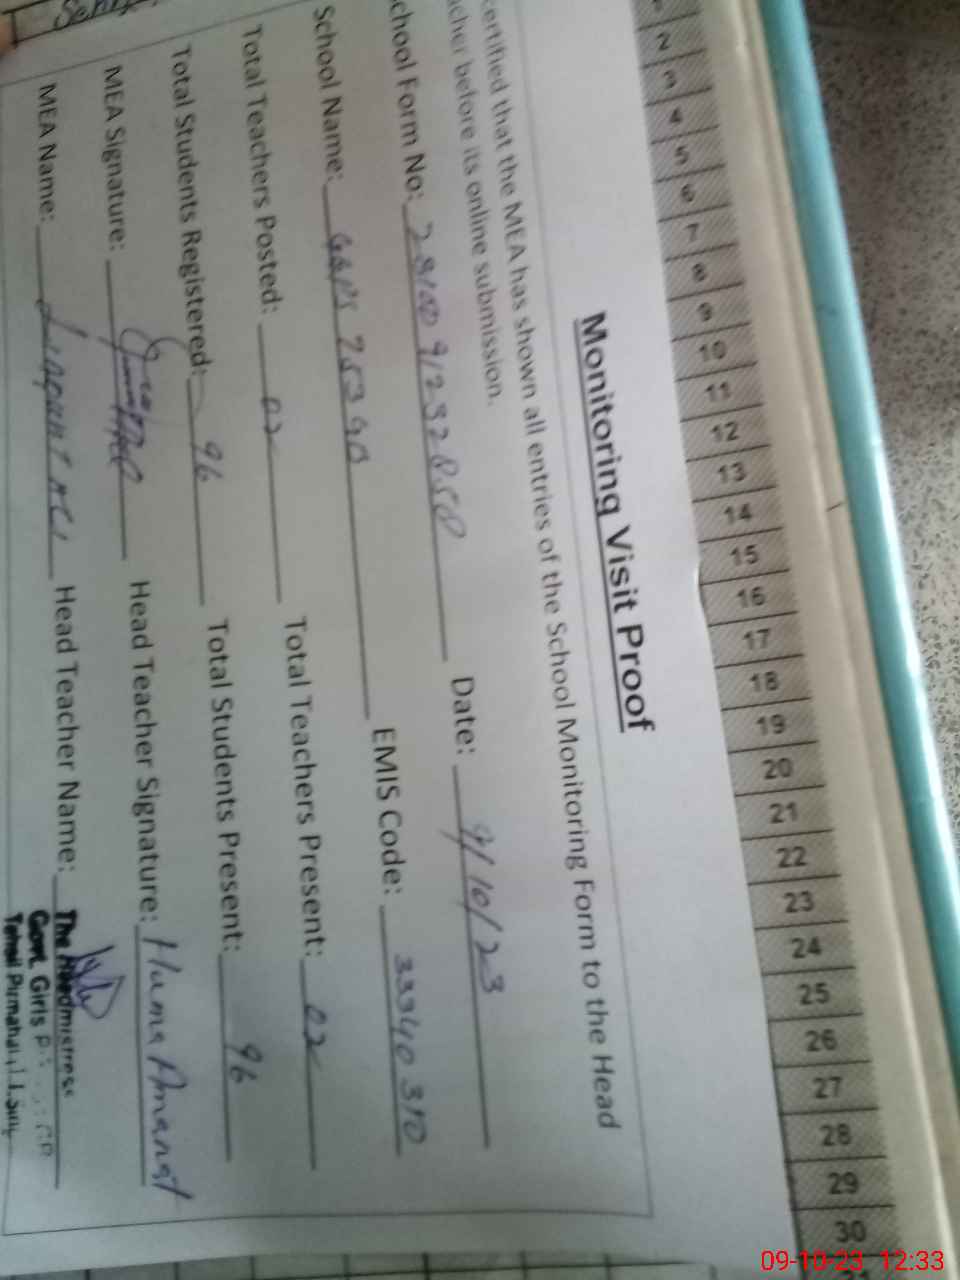 2 3 4 5 6 7 8 9 10 11 12 13 14 15 16 17 18 19 20 21 22 23 24 25 26 27 28 29 30
Monitoring Visit Proof
certified that the MEA has shown all entries of the School Monitoring Form to the Head
cher before its online submission.
chool Form No: Date: 9/10/23
School Name: EMIS Code: 33340310
Total Teachers Posted: 02 Total Teachers Present: 02
Total Students Registered: 96 Total Students Present: 96
MEA Signature: Head Teacher Signature: Huma
MEA Name: Head Teacher Name: The Headmistress
Govt. Girls
Tehsil Pirmahal
09-10-23 12:33